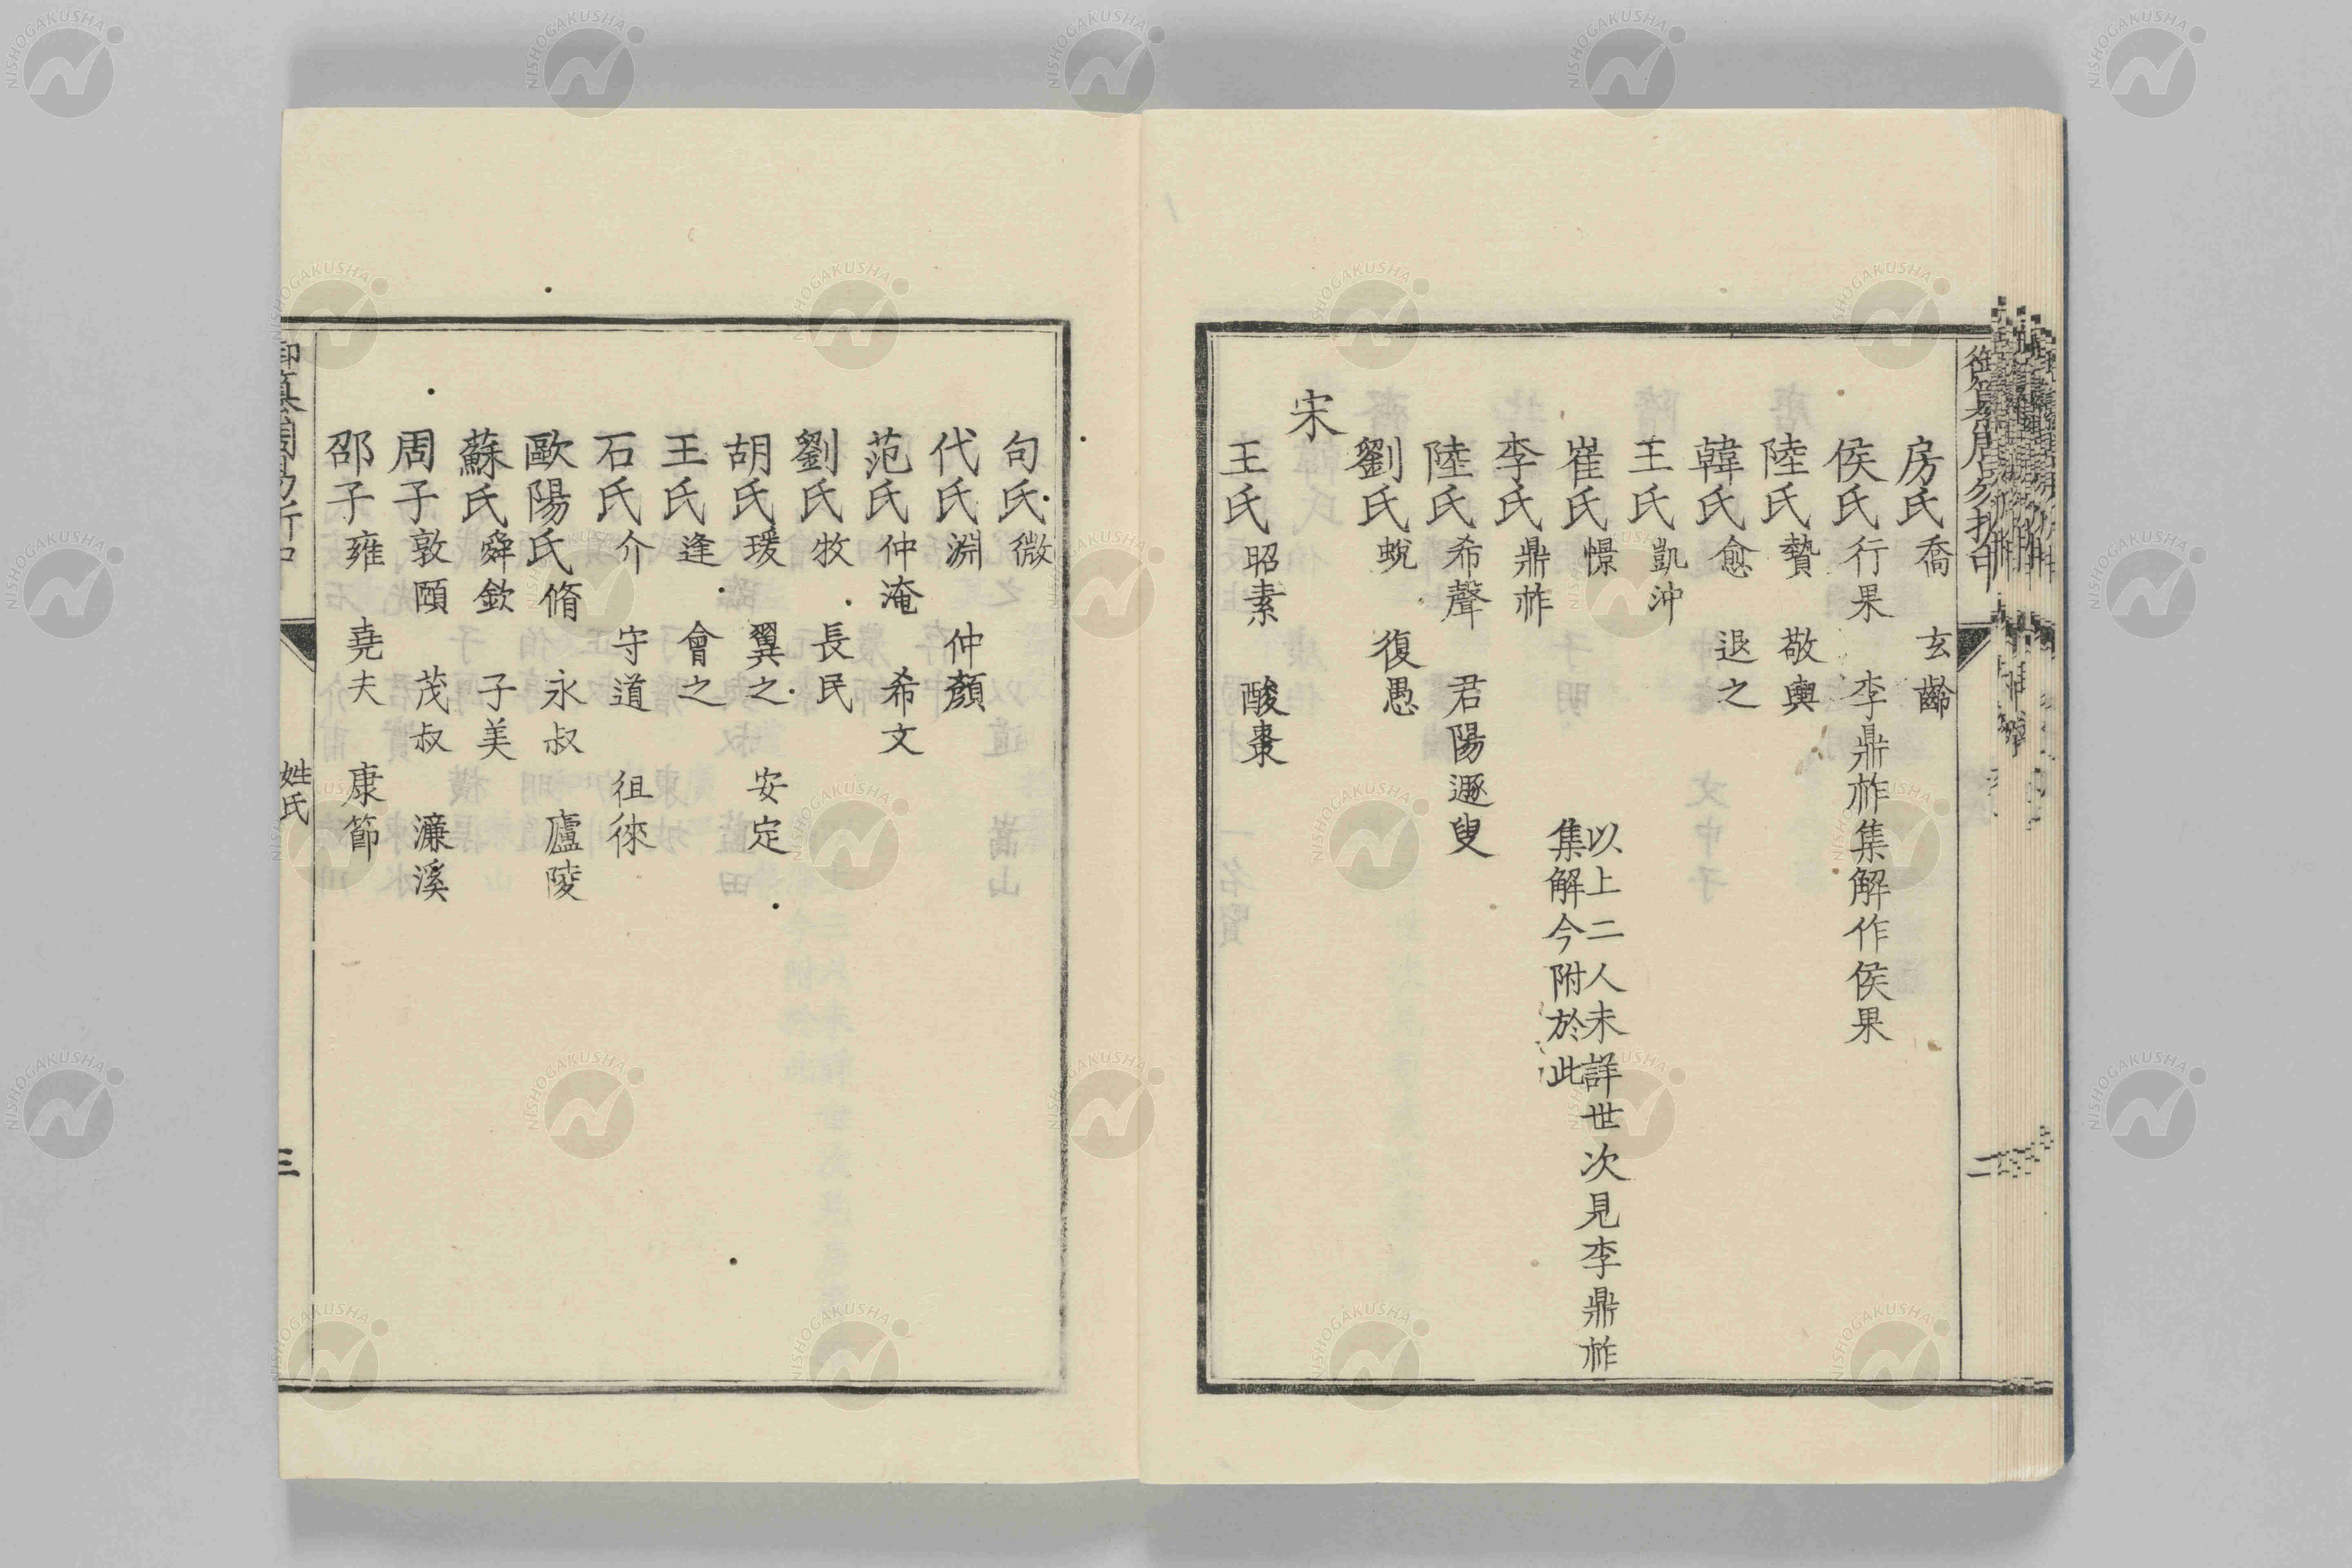 房氏喬 玄齡
侯氏行果 李鼎祚集解作侯果
陸氏贄 敬輿
韓氏愈 退之
王氏凱沖
崔氏憬 以上二人未詳世次見李鼎祚
集解今附於此
李氏鼎祚
陸氏希聲 君陽遯叟
劉氏蛻 復愚
宋
王氏昭素 酸棗
二
句氏微
代氏淵 仲顏
范氏仲淹 希文
劉氏牧 長民
胡氏瑗 翼之 安定
王氏逢 會之
石氏介 守道 徂徠
歐陽氏脩 永叔 廬陵
蘇氏舜欽 子美
周子敦頤 茂叔 濂溪
邵子雍 堯夫 康節
御纂周易折中 姓氏 三
NISHOGAKUSHA